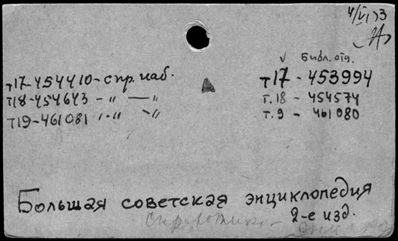 4/VI 73
v Библ. отд.
т17-454410-спр. каб. т17 - 453994
т18-454643 - " — " т.18 - 454574
т19-461081 - " - " т.9 - 461080
Большая советская энциклопедия
2-е изд.